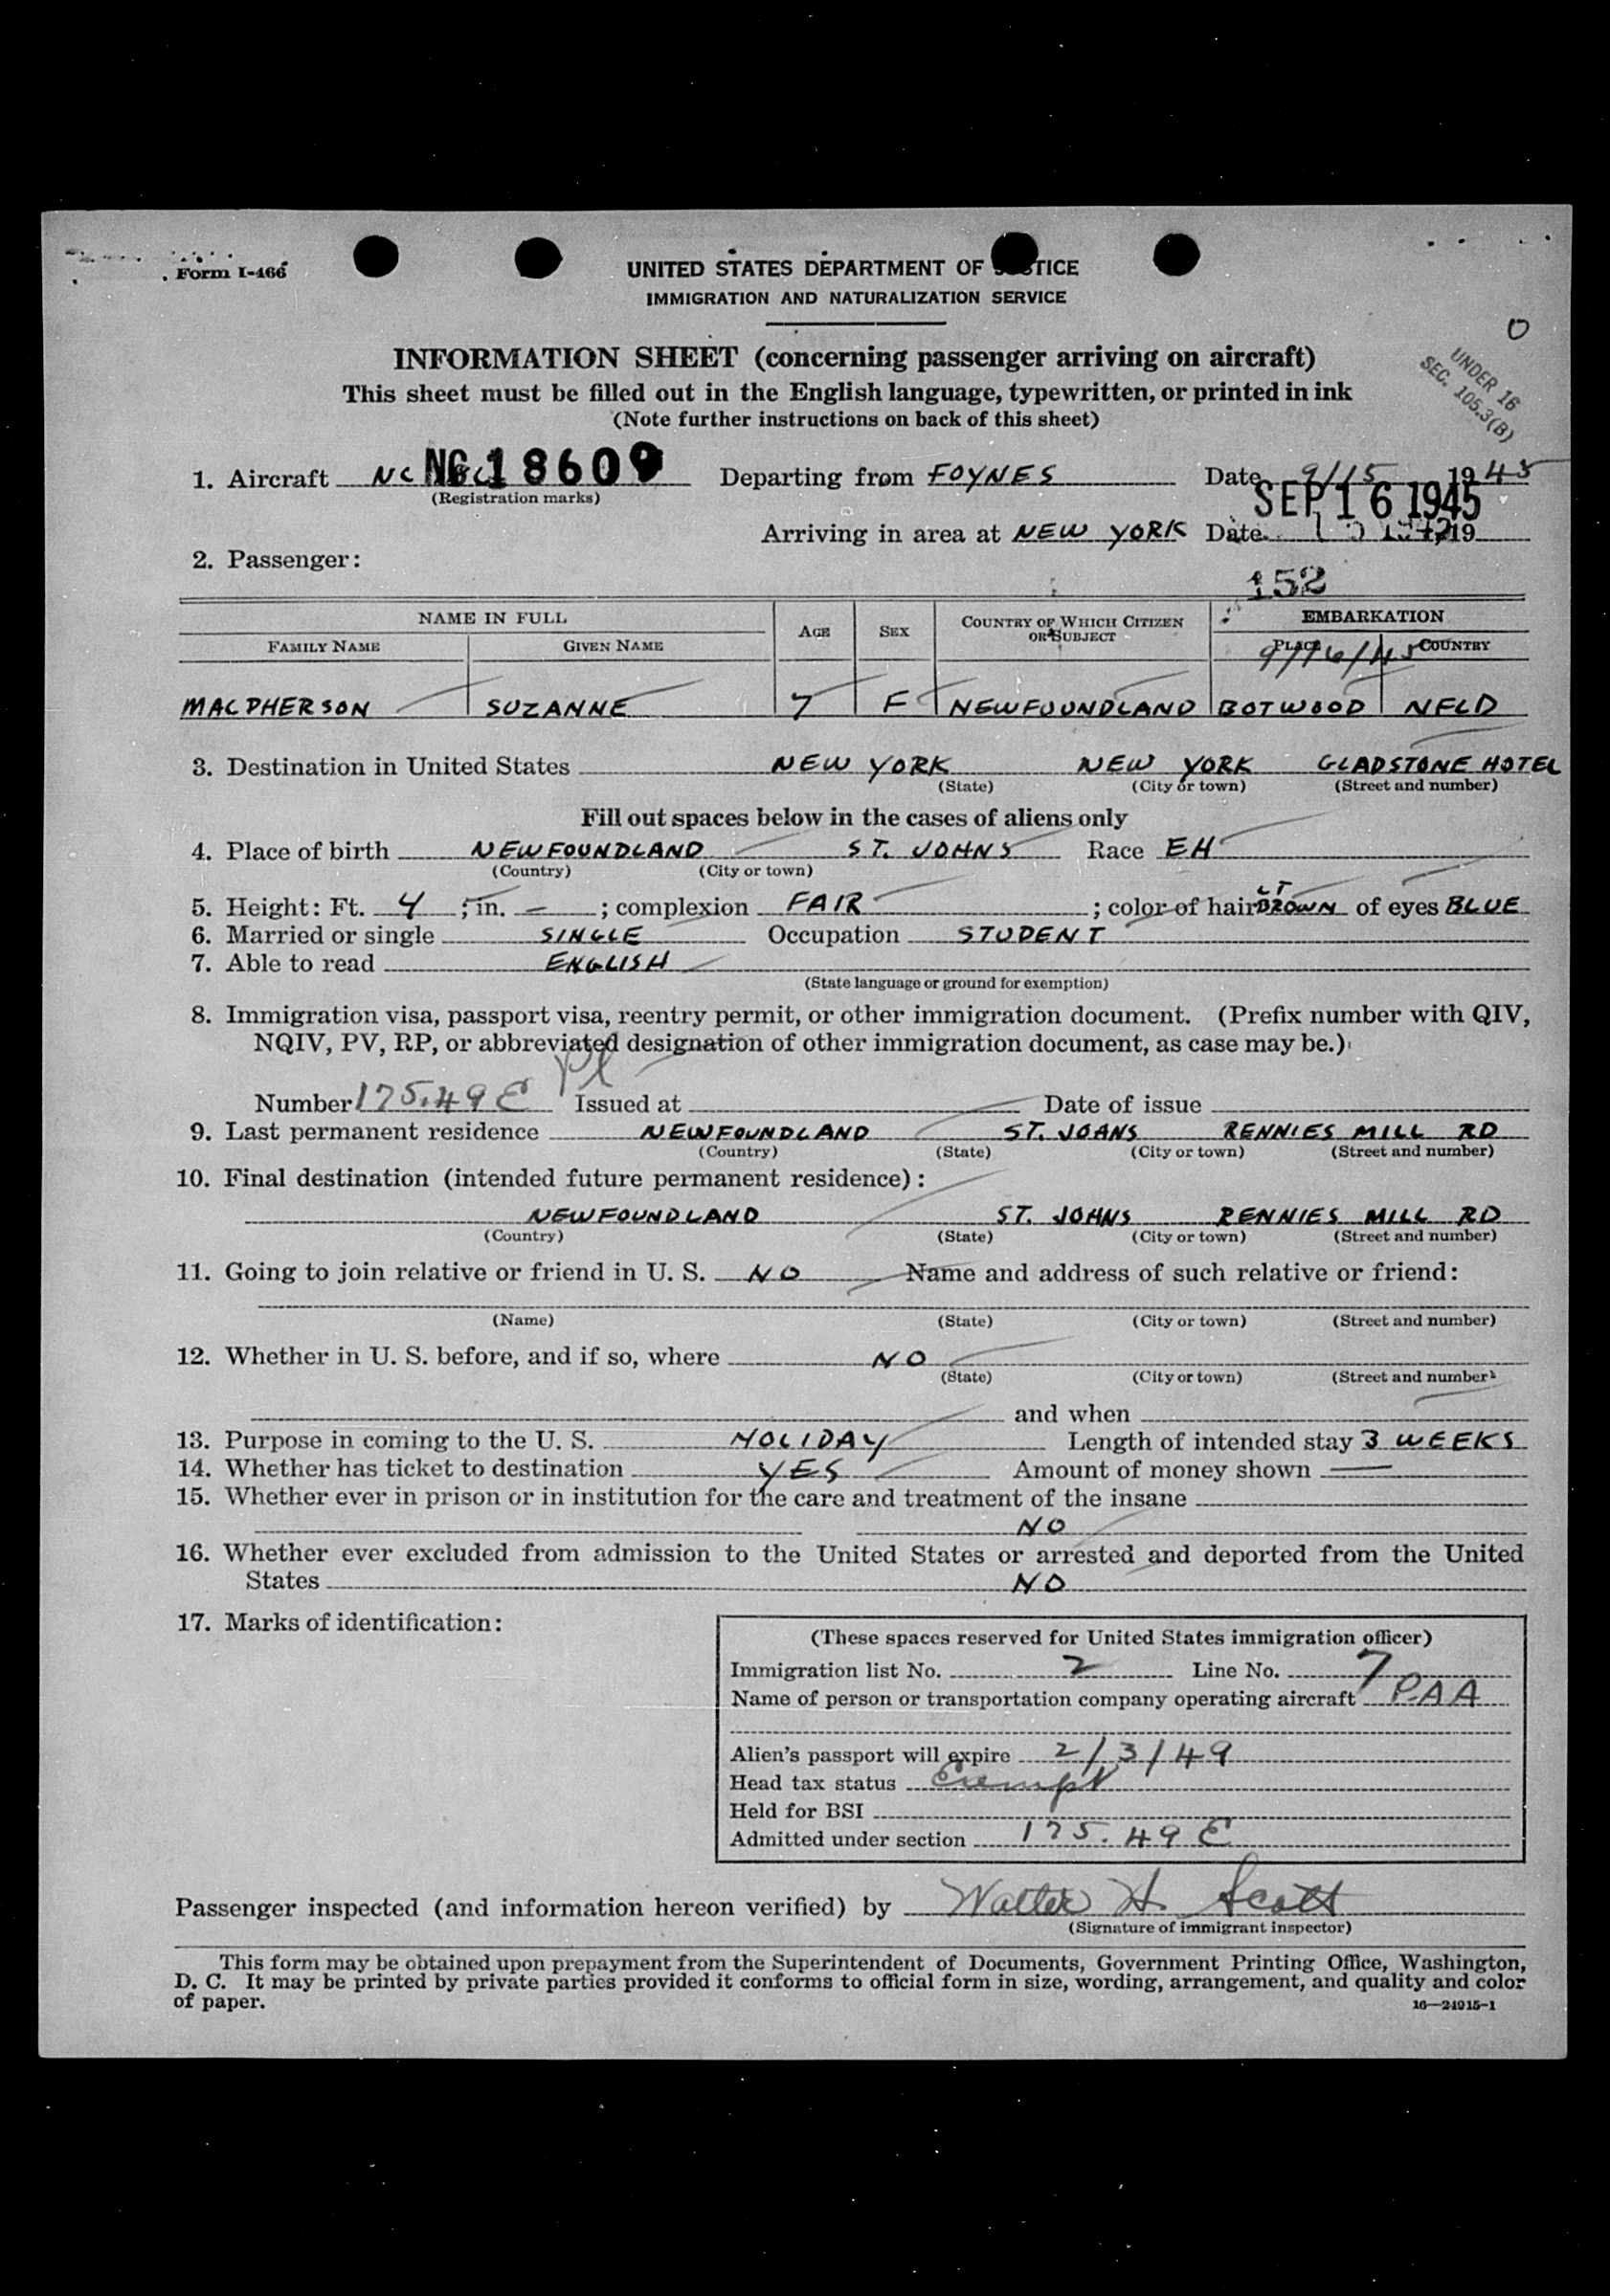 Form I-466
UNITED STATES DEPARTMENT OF JUSTICE
IMMIGRATION AND NATURALIZATION SERVICE
O
INFORMATION SHEET (concerning passenger arriving on aircraft)
UNDER 16
SEC. 105.3(B)
This sheet must be filled out in the English language, typewritten, or printed in ink
(Note further instructions on back of this sheet)
1. Aircraft NC NC18609 Departing from FOYNES Date 9/15 1945
(Registration marks)
SEP 16 1945
Arriving in area at NEW YORK Date 19
2. Passenger:
152
NAME IN FULL AGE SEX COUNTRY OF WHICH CITIZEN OR SUBJECT EMBARKATION
FAMILY NAME GIVEN NAME PLACE COUNTRY
9/16/45
MACPHERSON SUZANNE 7 F NEWFOUNDLAND BOTWOOD NFLD
3. Destination in United States NEW YORK NEW YORK GLADSTONE HOTEL
(State) (City or town) (Street and number)
Fill out spaces below in the cases of aliens only
4. Place of birth NEWFOUNDLAND ST. JOHNS Race EH
(Country) (City or town)
5. Height: Ft. 4 ; in. — ; complexion FAIR ; color of hair LT BROWN of eyes BLUE
6. Married or single SINGLE Occupation STUDENT
7. Able to read ENGLISH
(State language or ground for exemption)
8. Immigration visa, passport visa, reentry permit, or other immigration document. (Prefix number with QIV,
NQIV, PV, RP, or abbreviated designation of other immigration document, as case may be.)
Number 175.49 E Issued at Date of issue
9. Last permanent residence NEWFOUNDLAND ST. JOHNS RENNIES MILL RD
(Country) (State) (City or town) (Street and number)
10. Final destination (intended future permanent residence):
NEWFOUNDLAND ST. JOHNS RENNIES MILL RD
(Country) (State) (City or town) (Street and number)
11. Going to join relative or friend in U. S. NO Name and address of such relative or friend:
(Name) (State) (City or town) (Street and number)
12. Whether in U. S. before, and if so, where NO
(State) (City or town) (Street and number)
and when
13. Purpose in coming to the U. S. HOLIDAY Length of intended stay 3 WEEKS
14. Whether has ticket to destination YES Amount of money shown —
15. Whether ever in prison or in institution for the care and treatment of the insane
NO
16. Whether ever excluded from admission to the United States or arrested and deported from the United
States NO
17. Marks of identification:
(These spaces reserved for United States immigration officer)
Immigration list No. 2 Line No. 7
Name of person or transportation company operating aircraft PAA
Alien's passport will expire 2/3/49
Head tax status Exempt
Held for BSI
Admitted under section 175.49 E
Passenger inspected (and information hereon verified) by Walter H. Scott
(Signature of immigrant inspector)
This form may be obtained upon prepayment from the Superintendent of Documents, Government Printing Office, Washington,
D. C. It may be printed by private parties provided it conforms to official form in size, wording, arrangement, and quality and color
of paper.
16—24915-1